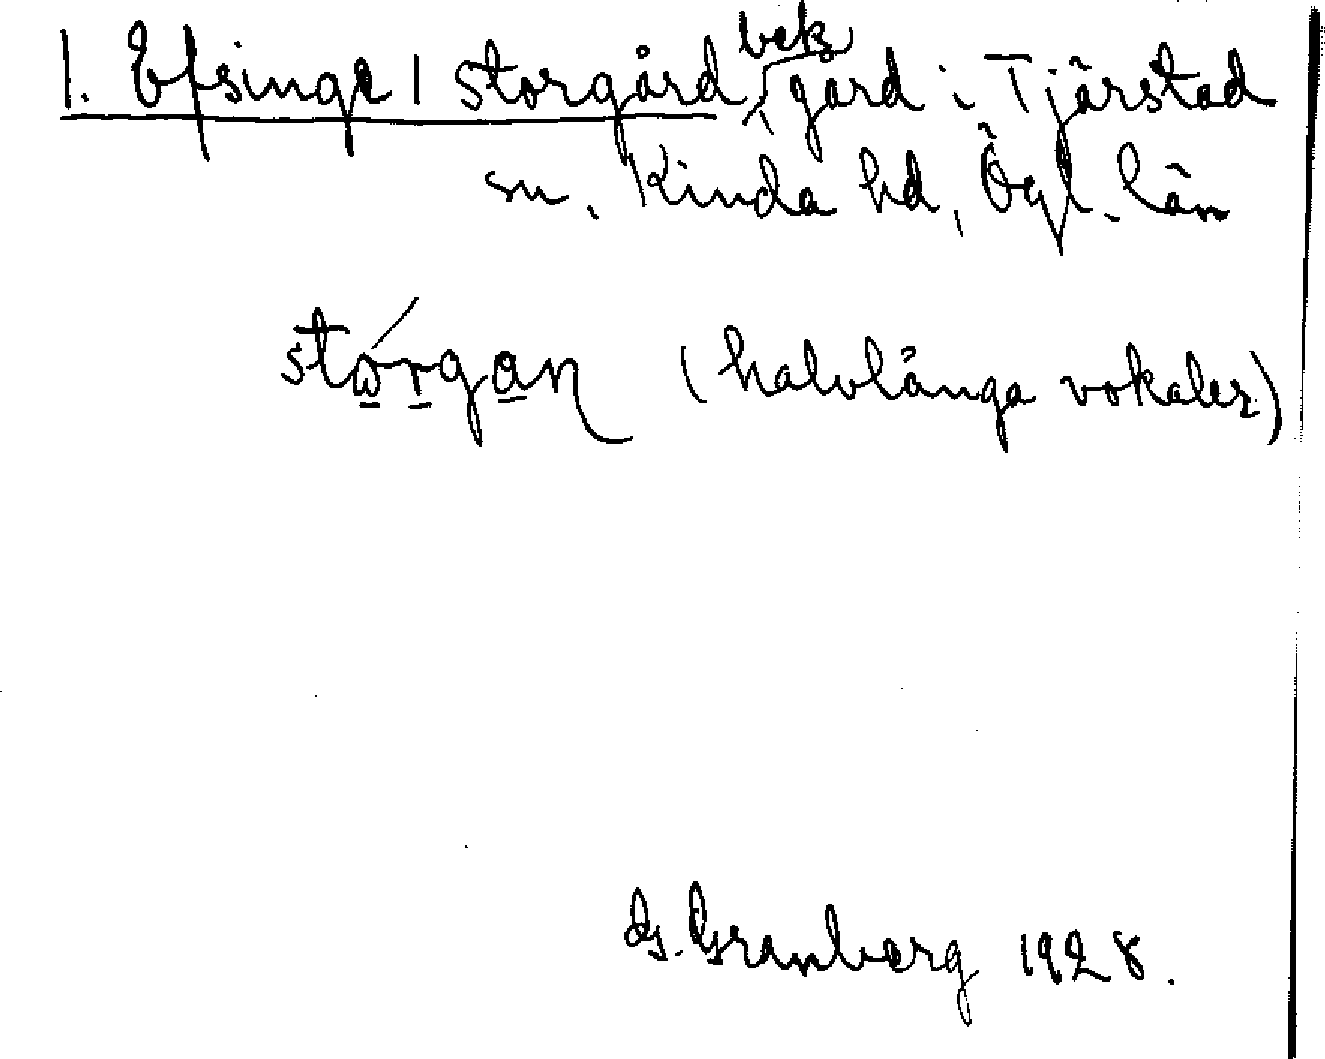 1. Efsinge | storgård, bek gård i Tjärstad
sn. Kinda hd, Ögl. län
stórgan (halvlånga vokaler)
G. Granberg 1928.